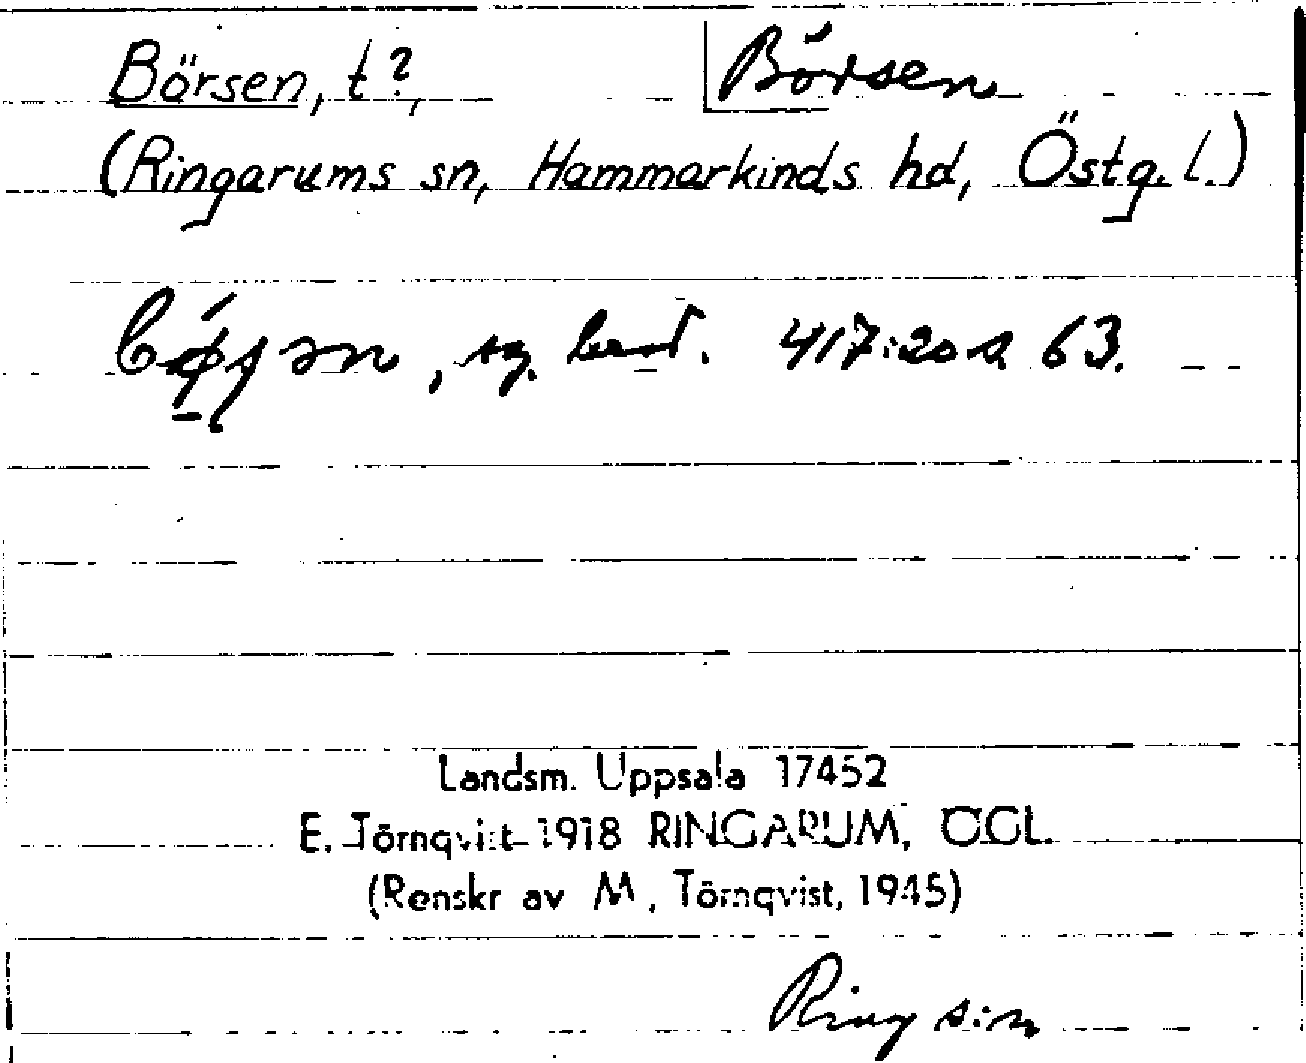 Börsen, t?, Börsen
(Ringarums sn, Hammarkinds hd, Östg. l.)
, sg. best. 417:20 s. 63.
Landsm. Uppsala 17452
E. Törnqvist 1918 RINGARUM, ÖGL.
(Renskr av M. Törnqvist, 1945)
Ring s:n